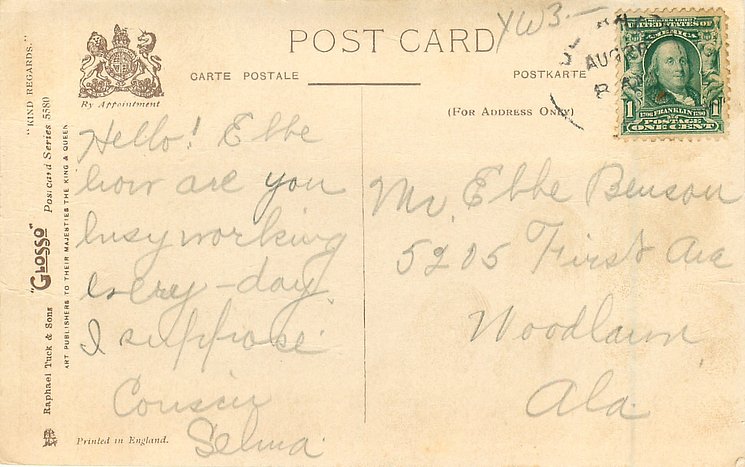 POST CARD
YW3.—
CARTE POSTALE
POSTKARTE
(FOR ADDRESS ONLY)
By Appointment
"KIND REGARDS."
Raphael Tuck & Sons "GLOSSO" Postcard Series 5580
ART PUBLISHERS TO THEIR MAJESTIES THE KING & QUEEN
Hello! Ebbe
how are you
busy working
every-day
I suppose
Cousin
Selma
Mr. Ebbe Benson
5205 First Ave
Woodlawn
Ala
Printed in England.
AUG
SERIES 1902
UNITED STATES OF
AMERICA
1 FRANKLIN 1
POSTAGE
ONE CENT